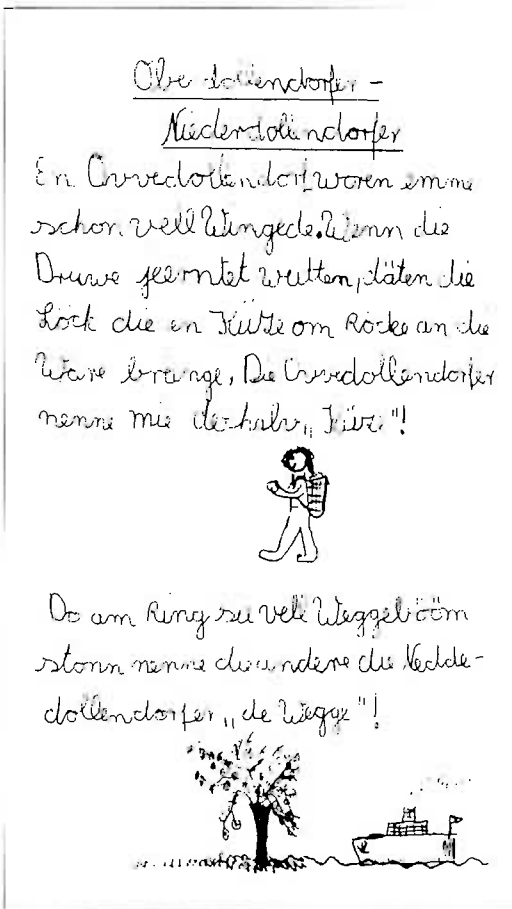 Oberdollendorfer -
Niederdollendorfer
En Ovvedollendorf woren emme
schon vell Wingede. Wenn die
Druwe jeerntet wutten, däten die
Löck die en Kütze om Röcke an die
Ware brenge. Die Ovvedollendorfer
nenne mie deshalv „
"!
Do am Ring su vell Weggebööm
stonn nenne die andere die Nedde-
dollendorfer „de Wegge"!